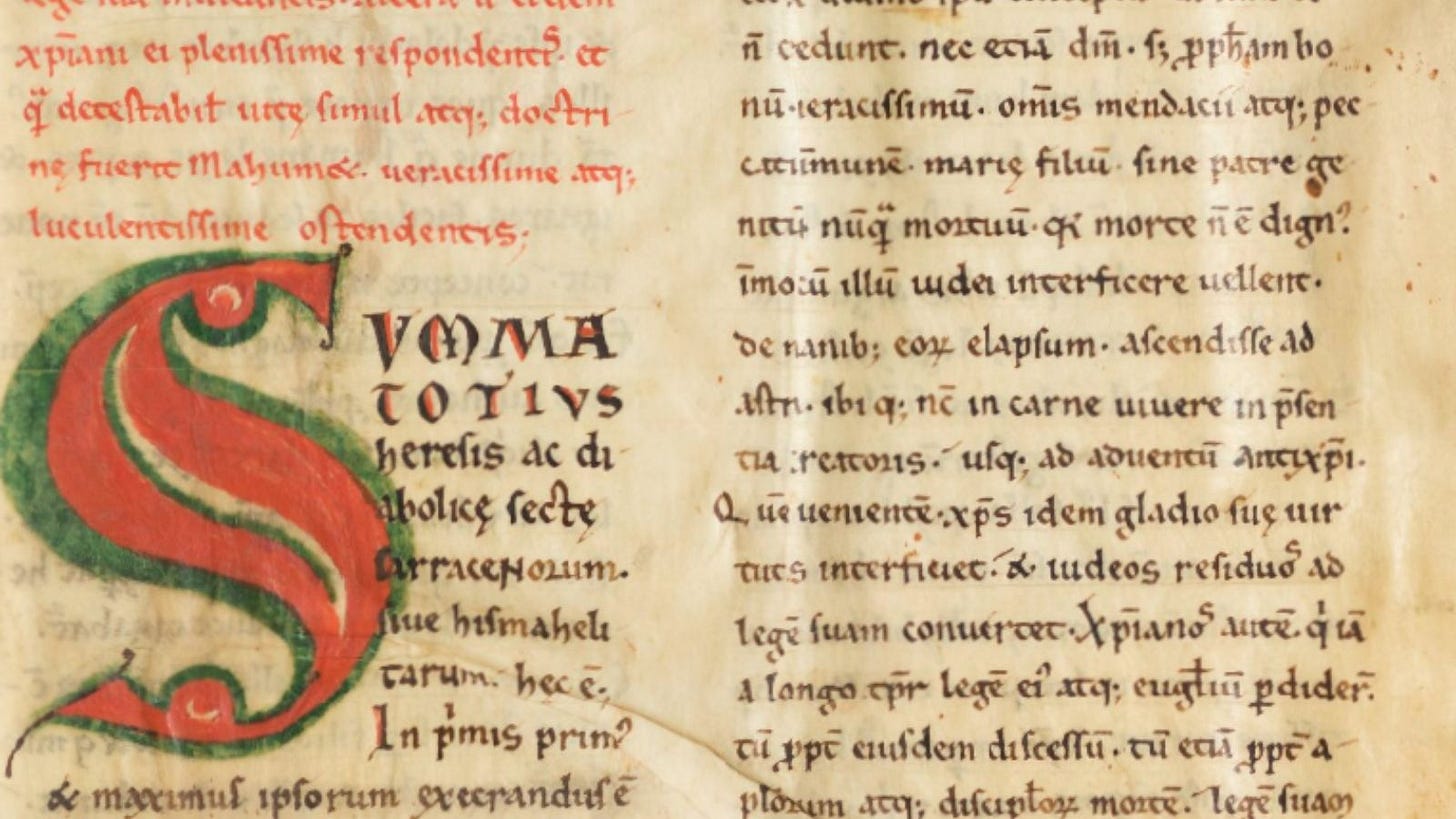 xp̄iani ei plenissime respondentes. et
q̄ detestabil uitę simul atq; doctri
nę fuerit Mahumet. ueracissime atq;
luculentissime ostendentis;
SVMMA
TOTIVS
heresis ac di
abolicę sectę
sarracenorum.
siue hismaheli
tarum. hec ē.
In p'mis prim'
& maximus ipsorum execrandus ē
n̄ cedunt. nec etiā dm̄. s; ꝓph̄am bo
nū. ueracissimū. om̄is mendacii atq; pec
cati īmunē. marię filiū. sine patre ge
nitū nūq̄ mortuū. q morte n̄ ē dign'.
īmo cū illū iudei interficere uellent.
de manib; eoꝝ elapsum. ascendisse ad
astra. ibiq; nc̄ in carne uiuere in p̄sen
tia creatoris. usq; ad aduentū antixp̄i.
Quē uenientē. xp̄s idem gladio suę uir
tutis interficiet. & iudeos residuos ad
legē suam conuertet. Xp̄ianos autē. q'iā
a longo tp̄r legē ei' atq; eugłiū ꝑdider̄.
tū ꝓpt̄ eiusdem discessū. tū etiā ꝓpt̄ a
płorum atq; discipłoꝝ mortē. legē suam